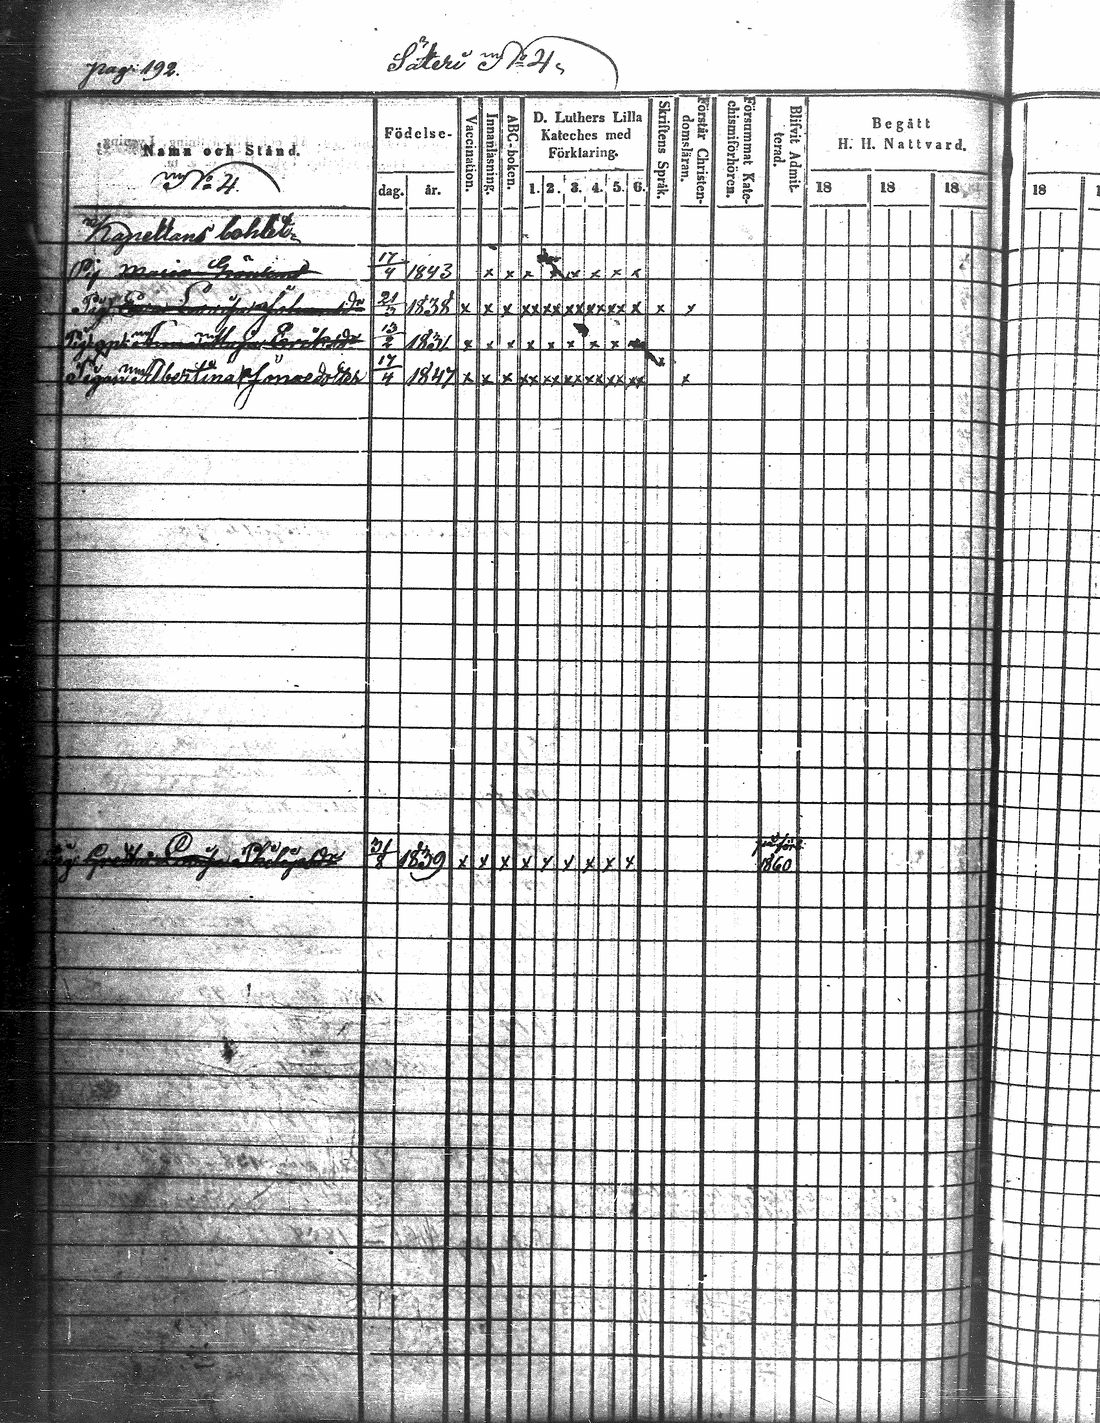 pag: 192.
Säteri N:o 4.
Namn och Stånd.
N:o 4.
Födelse-
dag. år.
Vaccination.
Innanläsning.
ABC-boken.
D. Luthers Lilla
Kateches med
Förklaring.
1. 2. 3. 4. 5. 6.
Skriftens Språk.
Förstår Christen-
domsläran.
Försummat Kate-
chismiförhören.
Blifvit Admit-
terad.
Begått
H. H. Nattvard.
18 18 18 18
Kapellans bohlet
Pig Maria 17/4 1843 x x x x x x x x
Pig Lovisa 21/3 1838 x x x xx xx xx xx xx x x x
13/2 1831 x x x x x x x x
Pigan Albertina Jonaedotter 17/4 1847 x x x xx xx xx xx xx xx x x
Pig Greta Lovisa 31/8 1839 x x x x x x x x x
1860